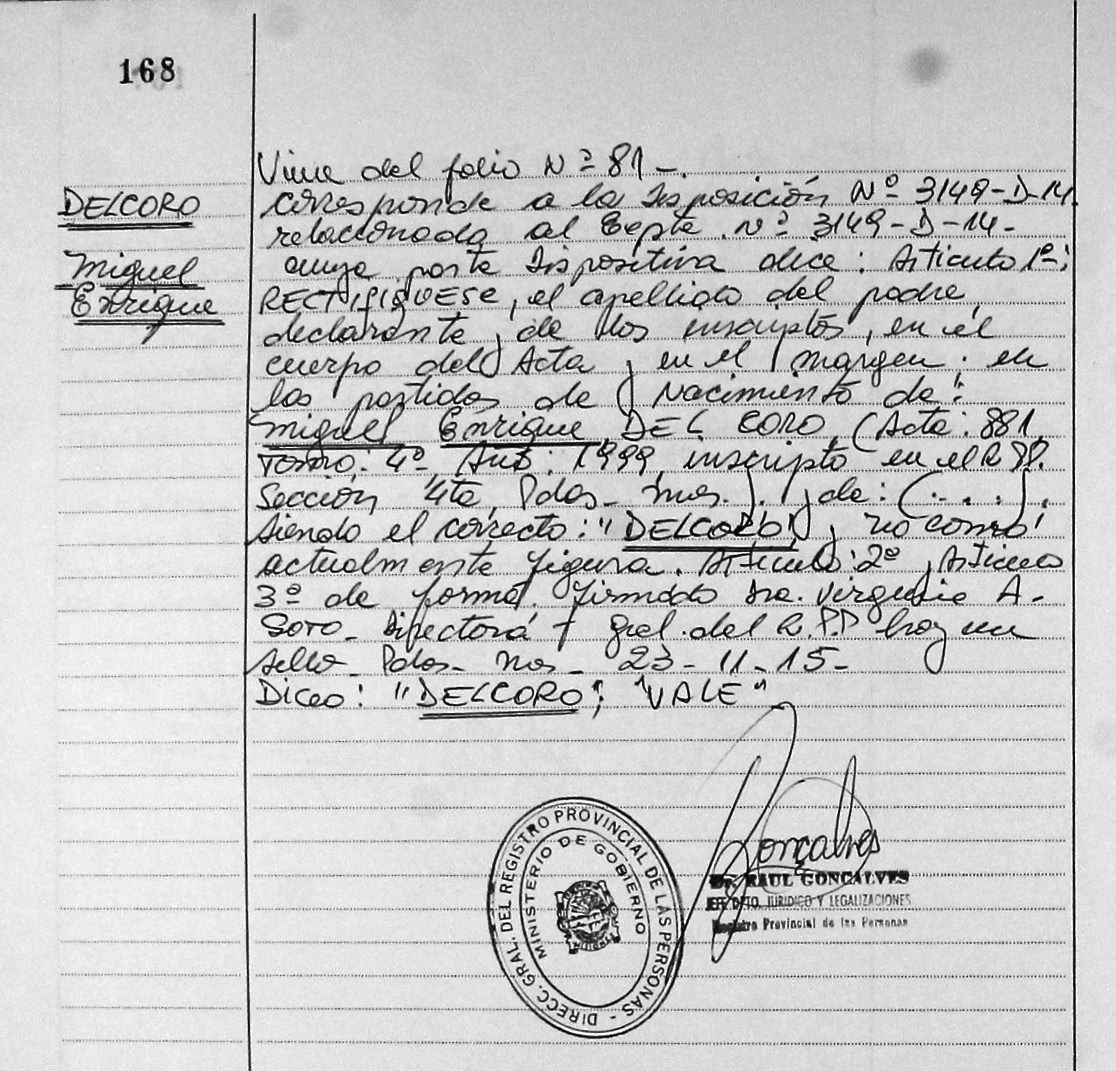 168
DELCORO
Miguel
Enrique
Viene del folio Nº 81 -
corresponde a la Disposición Nº 3149-D-14.
relacionada al Expte. Nº 3149-D-14-
cuya parte Dispositiva dice: Articulo 1º:
RECTIFIQUESE, el apellido del padre,
declarante, de los inscriptos, en el
cuerpo del Acta, en el margen, en
las partidas de Nacimiento de:
Miguel Enrique DEL CORO, (Acta: 881
Tomo: 4º, Año: 1999, inscripto en el R.PP.
Sección 4ta, Pdas_ Mnes.), de: (. . . .).
siendo el correcto: "DELCORO", no como
actualmente figura. Articulo: 2º, Articulo
3º de forma. Firmado Dra. Virginia A.
SOTO_ Directora gral. del R.P.P hay un
sello_ Pdas_ Mnes_ 23-11-15-
Digo: "DELCORO"; "VALE"
Gonçalves
Dr. RAUL GONCALVES
JEFE DPTO. JURIDICO Y LEGALIZACIONES
Registro Provincial de las Personas
DIRECC. GRAL. DEL REGISTRO PROVINCIAL DE LAS PERSONAS -
MINISTERIO DE GOBIERNO